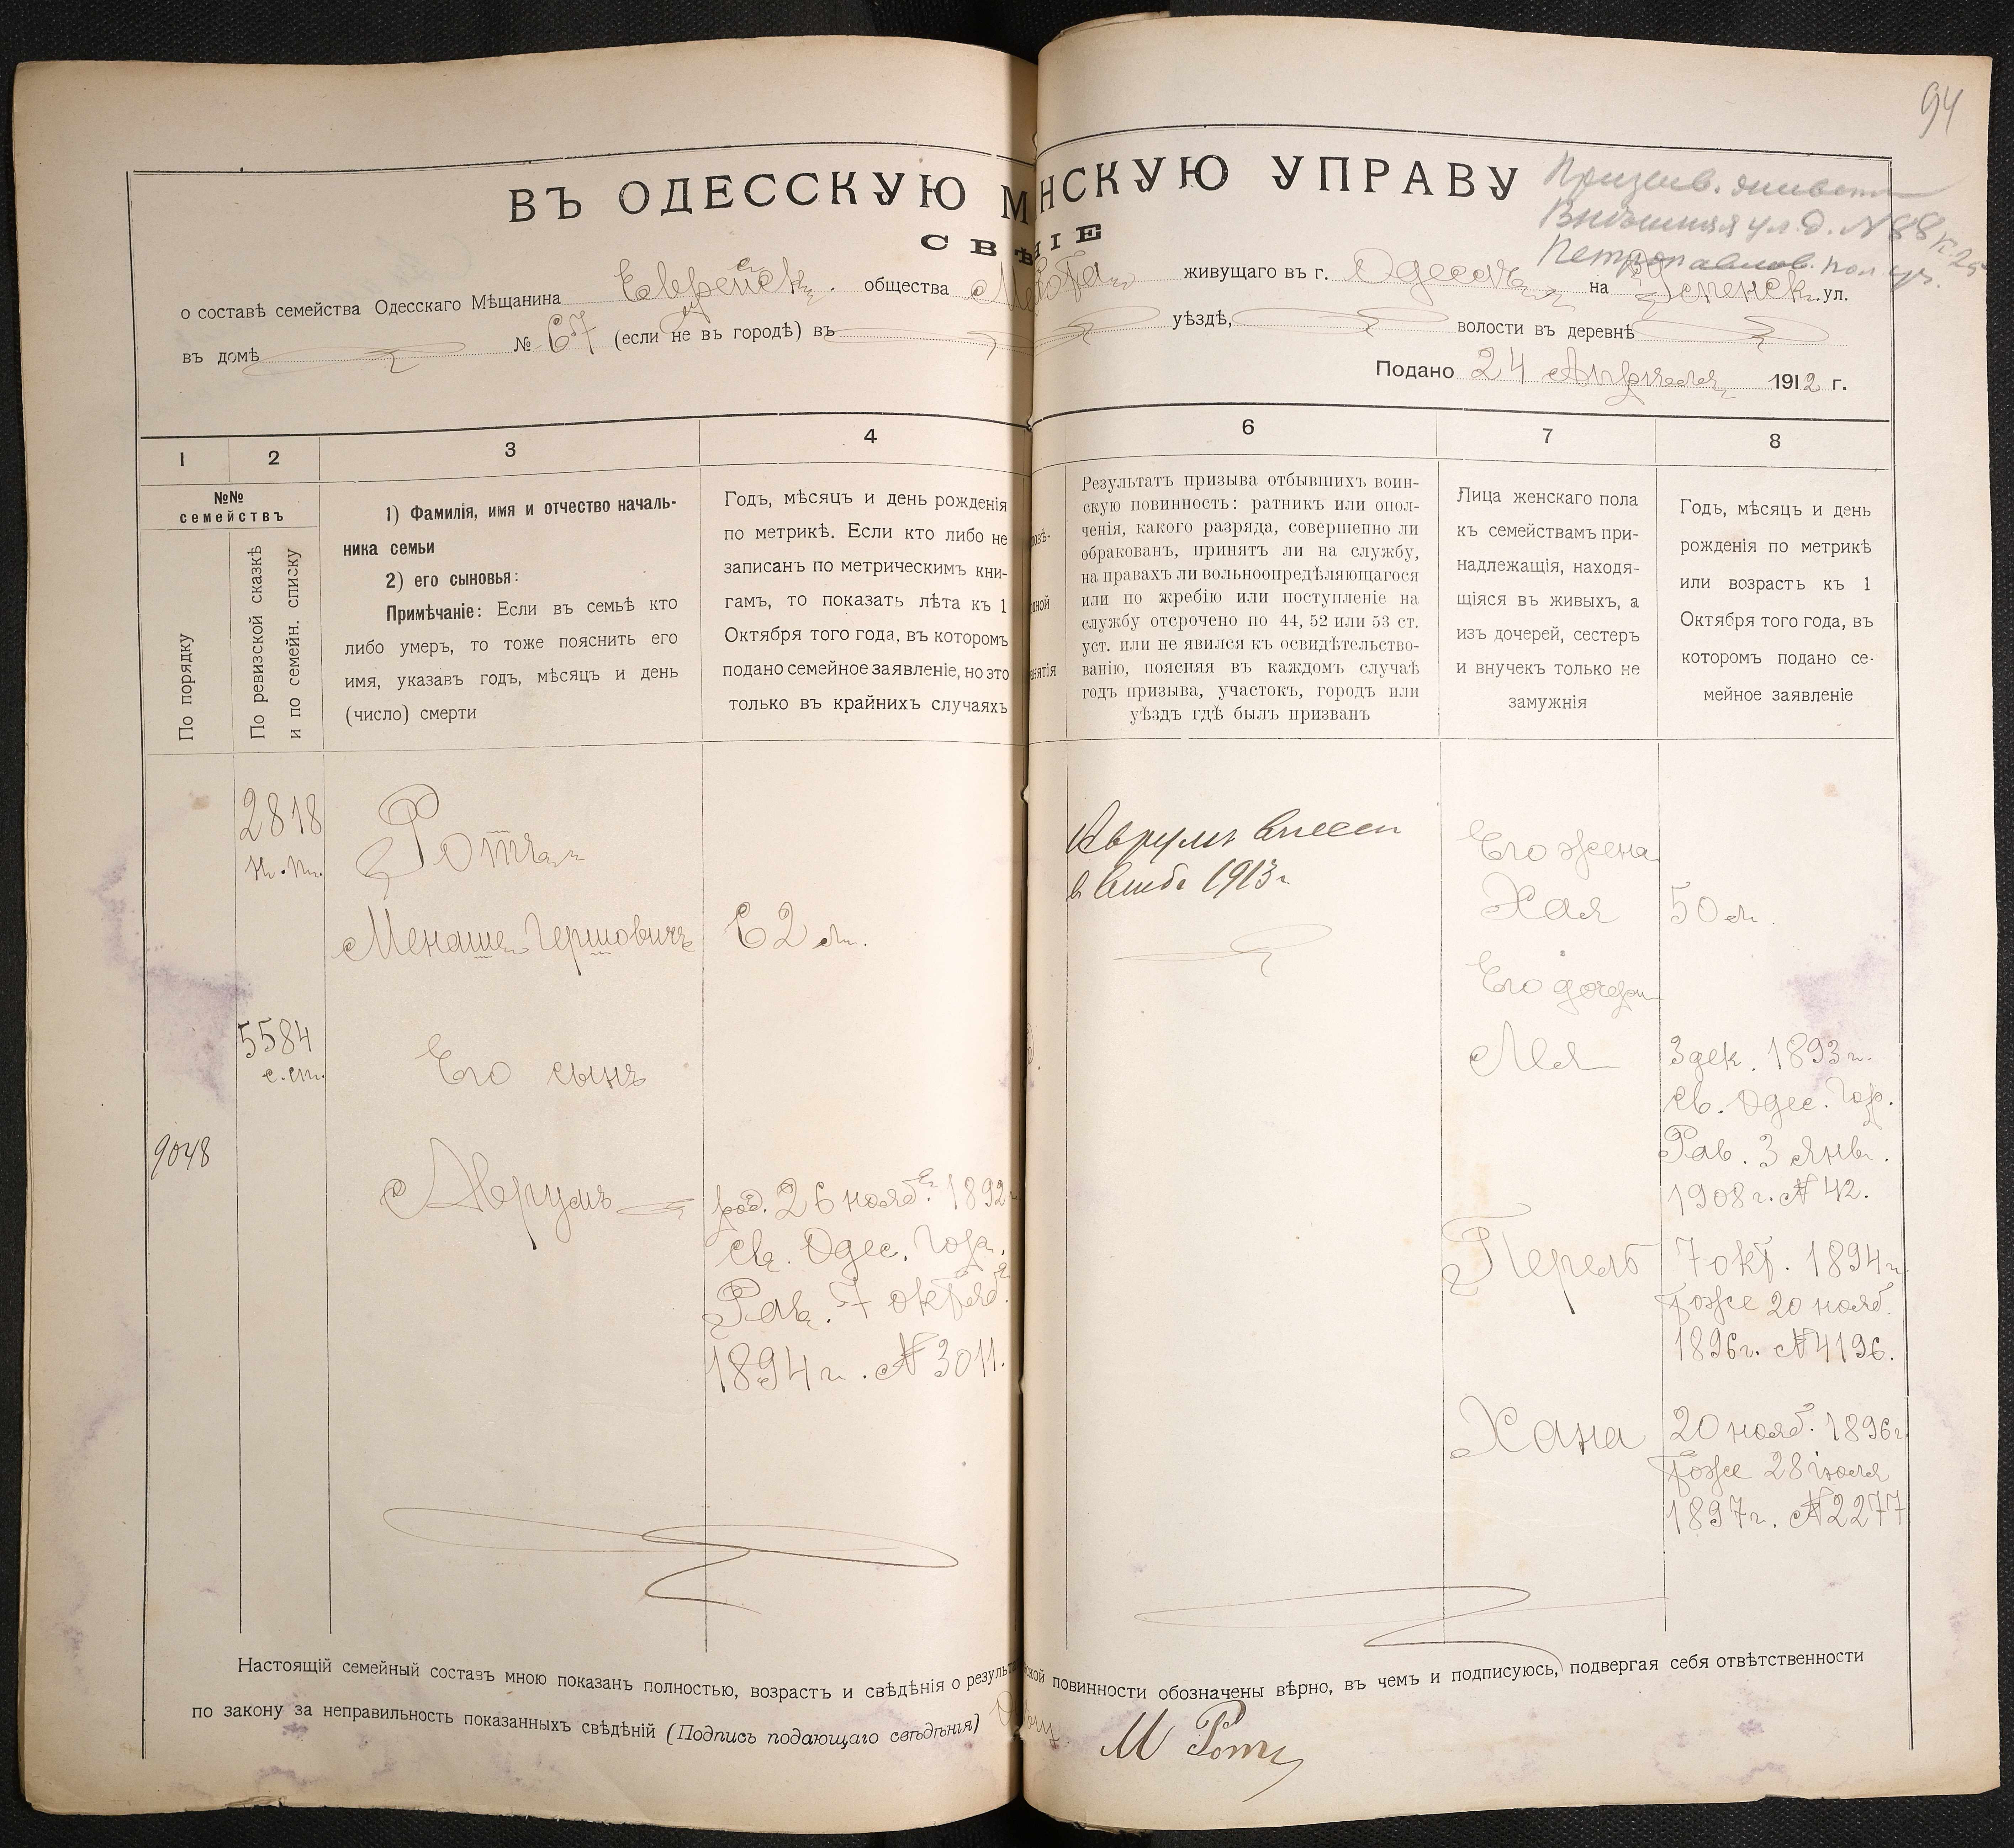 94
ВЪ ОДЕССКУЮ М НСКУЮ УПРАВУ
Призыв.
ул. д. № 88 к. 25
Петропавлов. пол. уч.
СВѢ НІЕ
о составѣ семейства Одесскаго Мѣщанина Еврейск. общества М Рота живущаго въ г. Одессѣ на Успенск. ул.
въ домѣ № 67 (если не въ городѣ) въ уѣздѣ, волости въ деревнѣ
Подано 24 Апрѣля 1912 г.
1 2 3 4 6 7 8
№№
семействъ
По порядку
По ревизской сказкѣ
и по семейн. списку
1) Фамилія, имя и отчество началь-
ника семьи
2) его сыновья:
Примѣчаніе: Если въ семьѣ кто
либо умеръ, то тоже пояснить его
имя, указавъ годъ, мѣсяцъ и день
(число) смерти
Годъ, мѣсяцъ и день рожденія
по метрикѣ. Если кто либо не
записанъ по метрическимъ кни-
гамъ, то показать лѣта къ 1
Октября того года, въ которомъ
подано семейное заявленіе, но это
только въ крайнихъ случаяхъ
овѣ-
дной
нятія
Результатъ призыва отбывшихъ воин-
скую повинность: ратникъ или опол-
ченія, какого разряда, совершенно ли
обракованъ, принятъ ли на службу,
на правахъ ли вольноопредѣляющагося
или по жребію или поступленіе на
службу отсрочено по 44, 52 или 53 ст.
уст. или не явился къ освидѣтельство-
ванію, поясняя въ каждомъ случаѣ
годъ призыва, участокъ, городъ или
уѣздъ гдѣ былъ призванъ
Лица женскаго пола
къ семействамъ при-
надлежащія, находя-
щіяся въ живыхъ, а
изъ дочерей, сестеръ
и внучекъ только не
замужнія
Годъ, мѣсяцъ и день
рожденія по метрикѣ
или возрастъ къ 1
Октября того года, въ
которомъ подано се-
мейное заявленіе
9048
2818
5584
с. сп.
Ротъ
Менаше Гершовичъ
Его сынъ
Аврумъ
62 л.
род. 26 нояб. 1892
св. Одес. Гор.
Рав. 7 октяб.
1894 г. № 3011.
Аврумъ внесен
в 1913 г
Его жена
Хая
Его дочери
Лея
Перель
Хана
50 л.
3 дек. 1893 г.
св. Одес. Гор.
Рав. 3 Янв.
1908 г. № 42.
7 окт. 1894 г
тоже 20 нояб.
1896 г. № 4196.
20 нояб. 1896 г
тоже 28 іюля
1897 г. № 2277
Настоящій семейный составъ мною показанъ полностью, возрастъ и свѣдѣнія о результ ской повинности обозначены вѣрно, въ чемъ и подписуюсь, подвергая себя отвѣтственности
по закону за неправильность показанныхъ свѣдѣній (Подпись подающаго свѣдѣнія)
М Ротъ